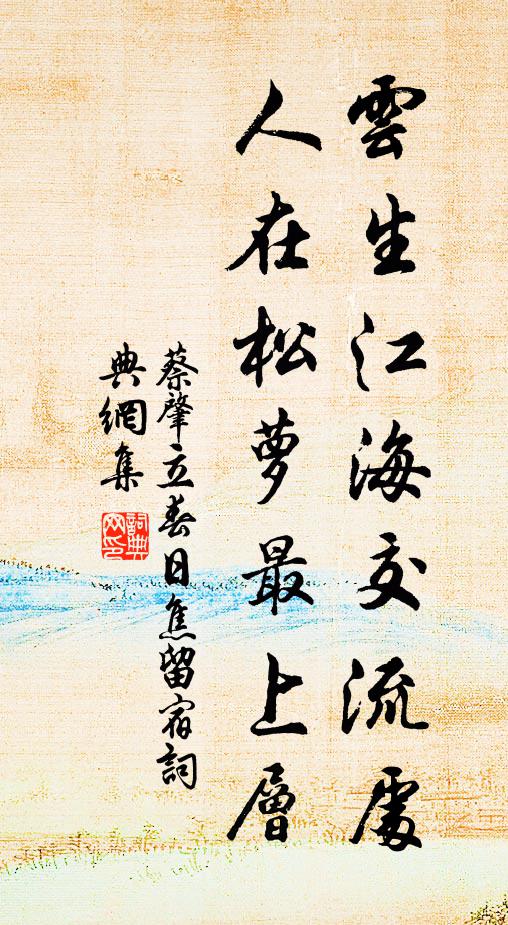 雲生江海交流處
人在松蘿最上層
蔡肇立春日焦留宿詞
典網集
詞典
网印